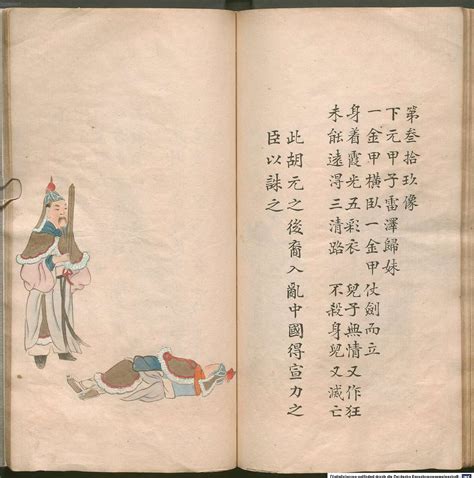 第叁拾玖像
下元甲子雷澤歸妹
一金甲橫臥一金甲仗劍而立
身着霞光五彩衣 兒子無情又作狂
未能遠得三清路 不殺身兒又滅亡
此胡元之後裔入亂中國得宣力之
臣以誅之
Digitalisierung gefördert durch die Deutsche Forschungsgemeinschaft